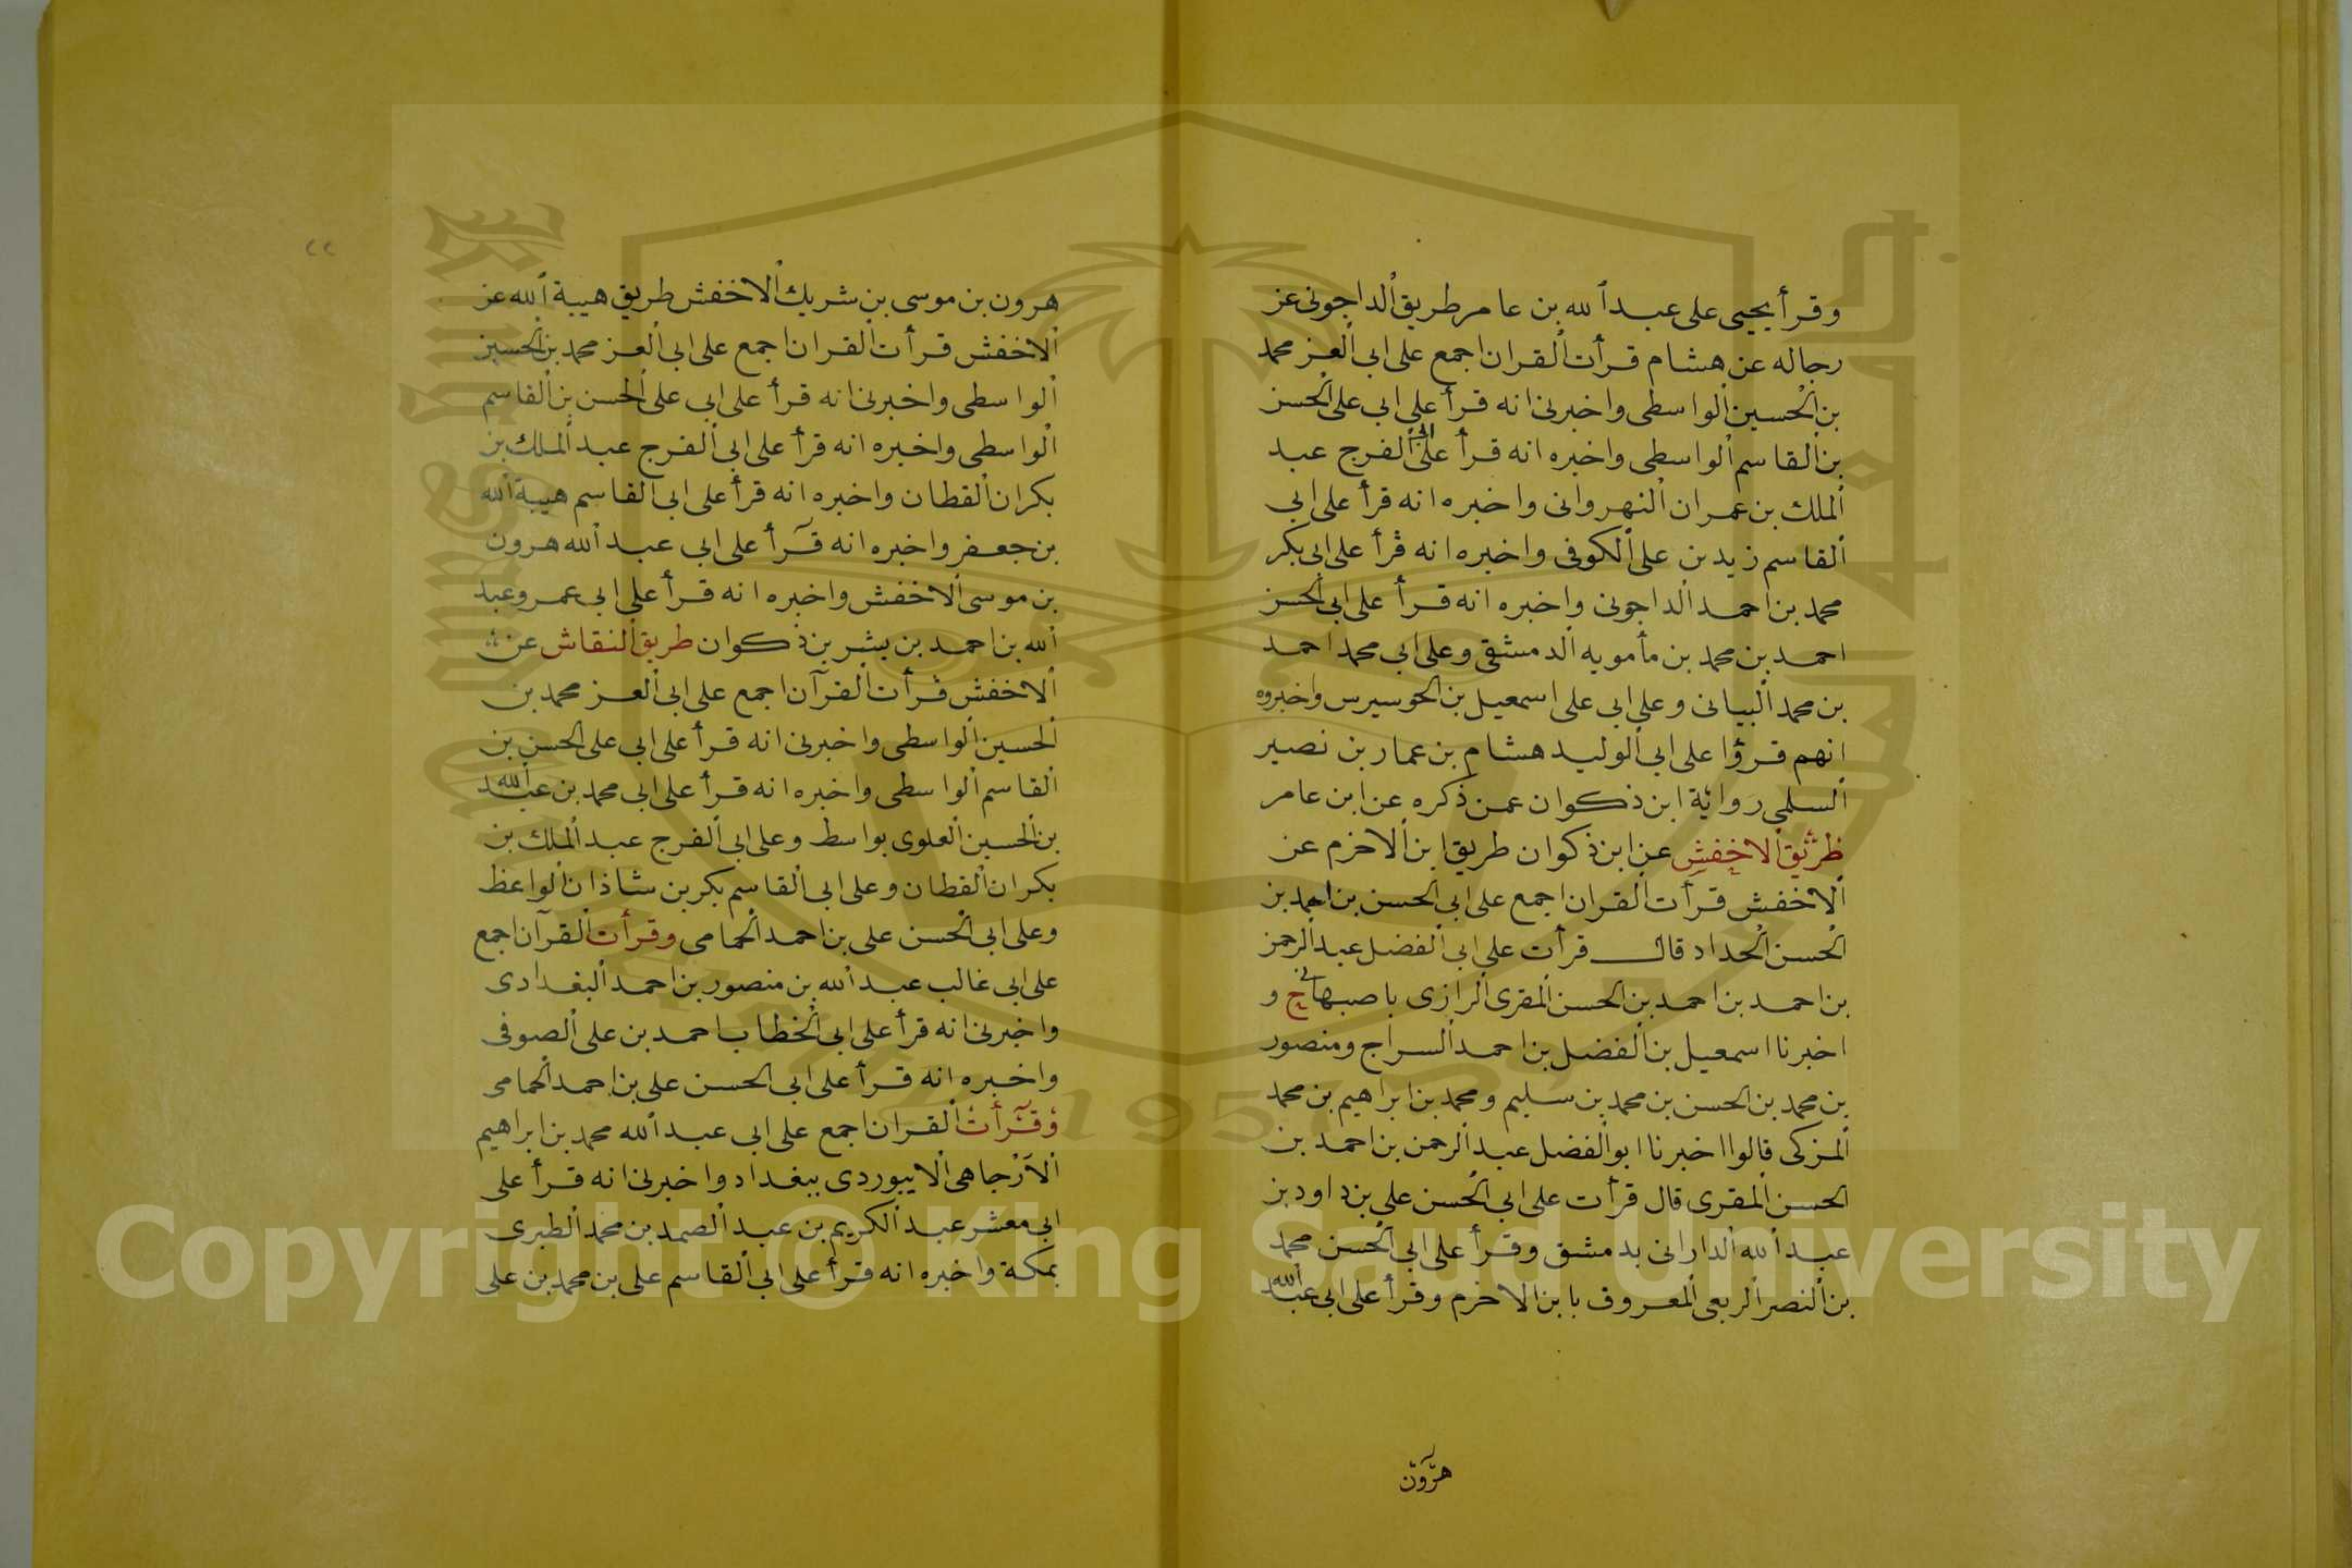 وقرأ يحيى على عبد الله بن عامر طريق الداجونى عن
رجاله عن هشام قرأت القران اجمع على ابى العز محمد
بن الحسين الواسطى واخبرنى انه قرأ على ابى على الحسن
بن القاسم الواسطى واخبره انه قرأ على ابى الفرج عبد
الملك بن عمران النهروانى واخبره انه قرأ على ابى
القاسم زيد بن على الكوفى واخبره انه قرأ على ابى بكر
محمد بن احمد الداجونى واخبره انه قرأ على ابى الحسن
احمد بن محمد بن مأمويه الدمشقى وعلى ابى محمد احمد
بن محمد البيانى وعلى ابى على اسمعيل بن الحوسيرس واخبروه
انهم قرؤا على ابى الوليد هشام بن عمار بن نصير
السلمى رواية ابن ذكوان عمن ذكره عن ابن عامر
طريق الاخفش عن ابن ذكوان طريق ابن الاخرم عن
الاخفش قرأت القران اجمع على ابى الحسن بن احمد بن
الحسن الحداد قال قرأت على ابى الفضل عبد الرحمن
بن احمد بن احمد بن الحسن المقرى الرازى باصبهان ح و
اخبرنا اسمعيل بن الفضل بن احمد السراج ومنصور
بن محمد بن الحسن بن محمد بن سليم ومحمد بن ابراهيم بن محمد
المزكى قالوا اخبرنا ابو الفضل عبد الرحمن بن احمد بن
الحسن المقرى قال قرأت على ابى الحسن على بن داود بن
عبد الله الدارانى بدمشق وقرأ على ابى الحسن محمد
بن النصر الربعى المعروف بابن الاخرم وقرأ على ابى عبد الله
هرون
هرون بن موسى بن شريك الاخفش طريق هيبة الله عن
الاخفش قرأت القران اجمع على ابى العز محمد بن الحسين
الواسطى واخبرنى انه قرأ على ابى على الحسن بن القاسم
الواسطى واخبره انه قرأ على ابى الفرج عبد الملك بن
بكران القطان واخبره انه قرأ على ابى القاسم هيبة الله
بن جعفر واخبره انه قرأ على ابى عبد الله هرون
بن موسى الاخفش واخبره انه قرأ على ابى عمرو عبد
الله بن احمد بن بشر بن ذكوان طريق النقاش عن
الاخفش قرأت القرآن اجمع على ابى العز محمد بن
الحسين الواسطى واخبرنى انه قرأ على ابى على الحسن بن
القاسم الواسطى واخبره انه قرأ على ابى محمد بن عبد الله
بن الحسين العلوى بواسط وعلى ابى الفرج عبد الملك بن
بكران القطان وعلى ابى القاسم بكر بن شاذان الواعظ
وعلى ابى الحسن على بن احمد الحمامى وقرأت القرآن اجمع
على ابى غالب عبد الله بن منصور بن احمد البغدادى
واخبرنى انه قرأ على ابى الخطاب احمد بن على الصوفى
واخبره انه قرأ على ابى الحسن على بن احمد الحمامى
وقرأت القران اجمع على ابى عبد الله محمد بن ابراهيم
الآرجاهى الابيوردى ببغداد واخبرنى انه قرأ على
ابى معشر عبد الكريم بن عبد الصمد بن محمد الطبرى
بمكة واخبره انه قرأ على ابى القاسم على بن محمد بن على
Copyright © King Saud University
1957